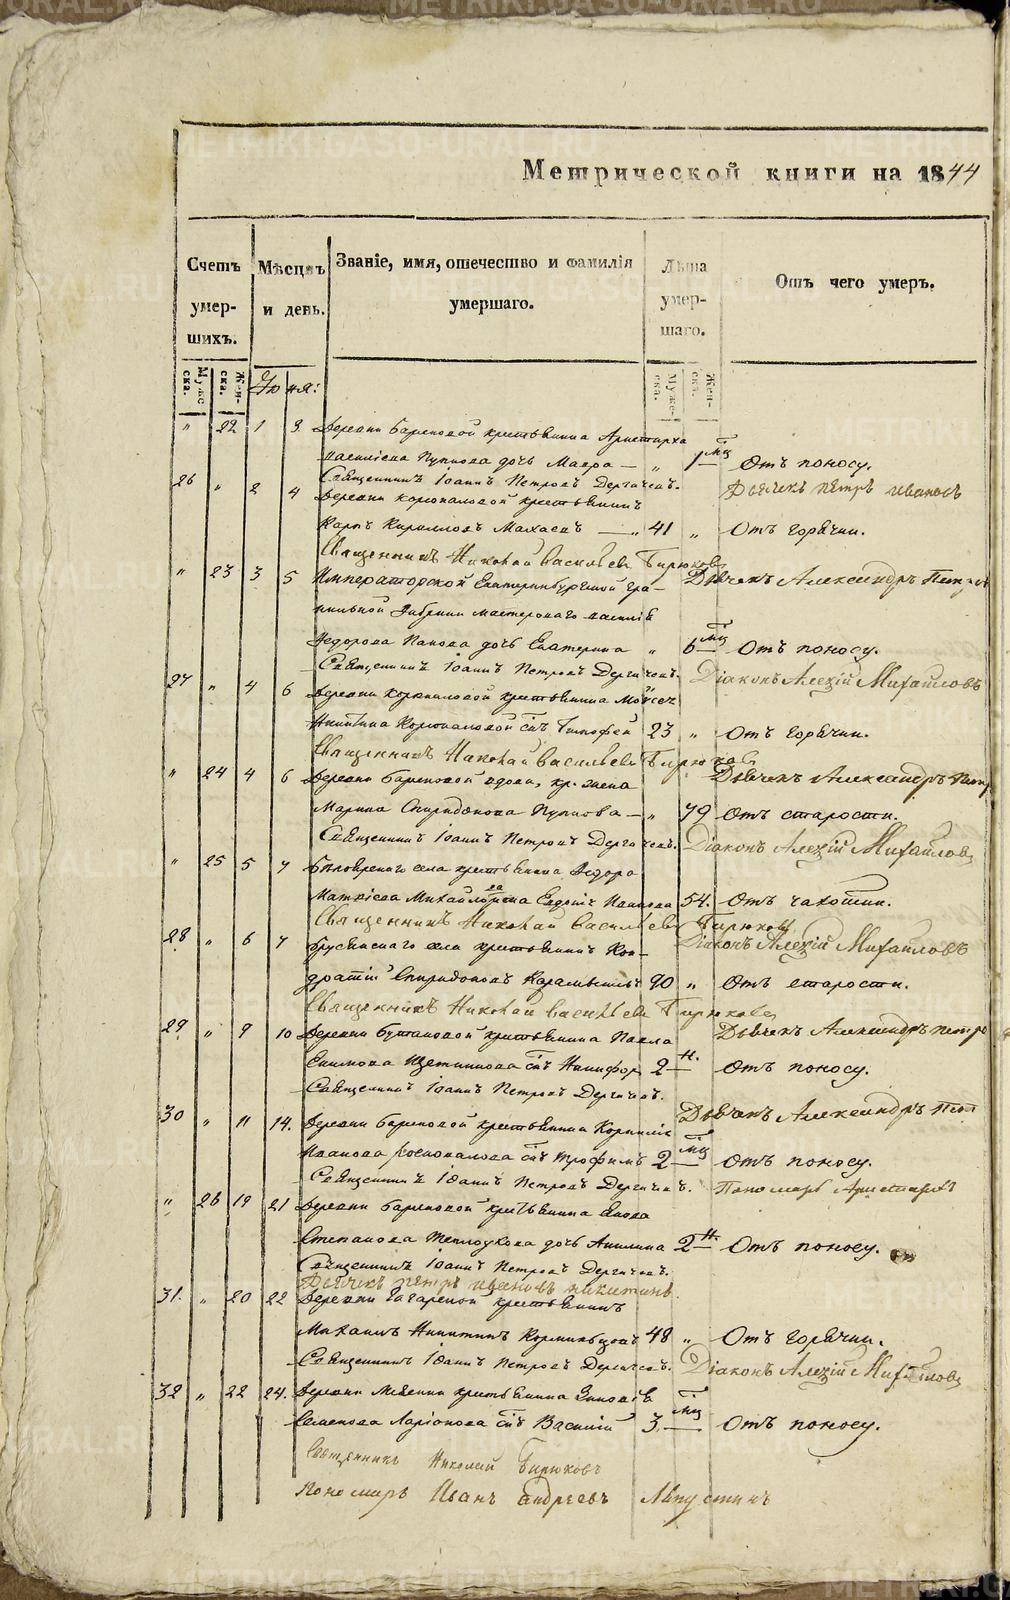 Метрической книги на 1844
Счетъ умершихъ.
Мѣсяцъ и день.
Званіе, имя, отечество и фамилія умершаго.
Лѣта умершаго.
Отъ чего умеръ.
Мужеска.
Женска.
Іюня:
Мужеска.
Женска.
" 22 1 3 Деревни Бареновой крестьянина Аристарха
Василіева Пупкова дочь Мавра — " 1 мц Отъ поносу.
Священникъ Іоаннъ Петровъ Дергачевъ. Дьячекъ Петръ Ивановъ
26 " 2 4 Деревни Корюкаловой крестьянинъ
Карпъ Кирилловъ — " 41 " Отъ горячки.
Священникъ Николай Васильевъ Бирюковъ Дьячекъ Александръ
" 23 3 5 Императорской Екатеринбургской гра-
нильной Фабрики мастероваго Василія
Федорова Панова дочь Екатерина " 6 мц Отъ поносу.
Священникъ Іоаннъ Петровъ Дергачевъ. Діаконъ Алексій Михайловъ
27 " 4 6 Деревни крестьянина Моѵсея
Никитина сынъ Тимофей 23 " Отъ горячки.
Священникъ Николай Васильевъ Бирюковъ Дьячекъ Александръ
" 24 4 6 Деревни Бареновой вдова, кр. жена
Марина Спиридонова Пупкова — " 79 Отъ старости.
Священникъ Іоаннъ Петровъ Дергачевъ. Діаконъ Алексій Михайловъ
" 25 5 7 села крестьянина Федора
Матвіева Михайлова Евдокія 54. Отъ чахотки.
Священникъ Николай Васильевъ Бирюковъ Діаконъ Алексій Михайловъ
28 " 6 7 Брусянскаго села крестьянинъ Кон-
дратій Спиридоновъ 90 " Отъ старости.
Священникъ Николай Васильевъ Бирюковъ
29 " 9 10 Деревни крестьянина Павла Дьячекъ Александръ
Екимова Щетинкова сынъ Никифоръ 2 н. Отъ поносу.
Священникъ Іоаннъ Петровъ Дергачевъ.
30 " 11 14. Деревни Бареновой крестьянина Корнилія Дьячекъ Александръ
Иванова сынъ Трофимъ 2 мц Отъ поносу.
Священникъ Іоаннъ Петровъ Дергачевъ. Пономарь
" 26 19 21 Деревни Бареновой крестьянина
Степанова Теплоухова дочь Акилина 2 н. Отъ поносу.
Священникъ Іоаннъ Петровъ Дергачевъ.
Дьячекъ Петръ Ивановъ Никитинъ.
31. " 20 22 Деревни Гагарской крестьянинъ
Михаилъ Никитинъ 48 " Отъ горячки.
Священникъ Іоаннъ Петровъ Дергачевъ. Діаконъ Алексій Михайловъ
32 " 22 24. Деревни крестьянина Зиновія
Семенова Ларіонова сынъ Василій 3. мц Отъ поносу.
Священникъ Николай Бирюковъ
Пономарь Иванъ Андреевъ Ляпустинъ
METRIKI.GASO-URAL.RU